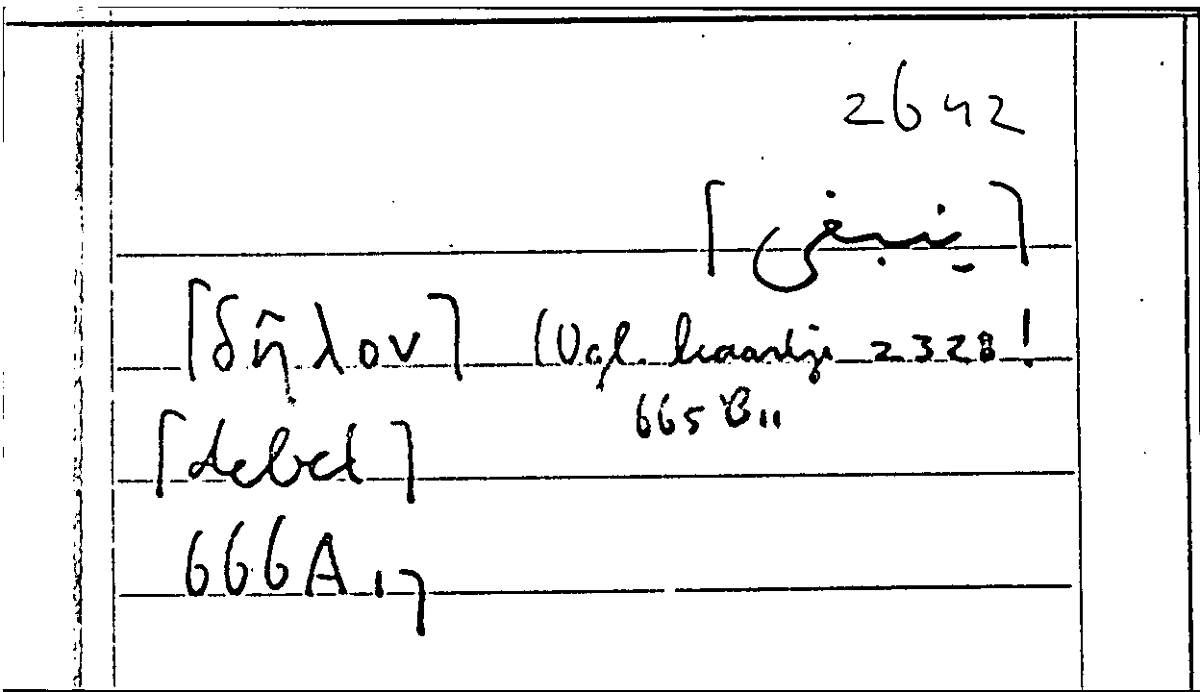 2642
[ينبغى]
[δῆλον] (Vgl. kaartje 2328!
665 B 11
[debet]
666A 17